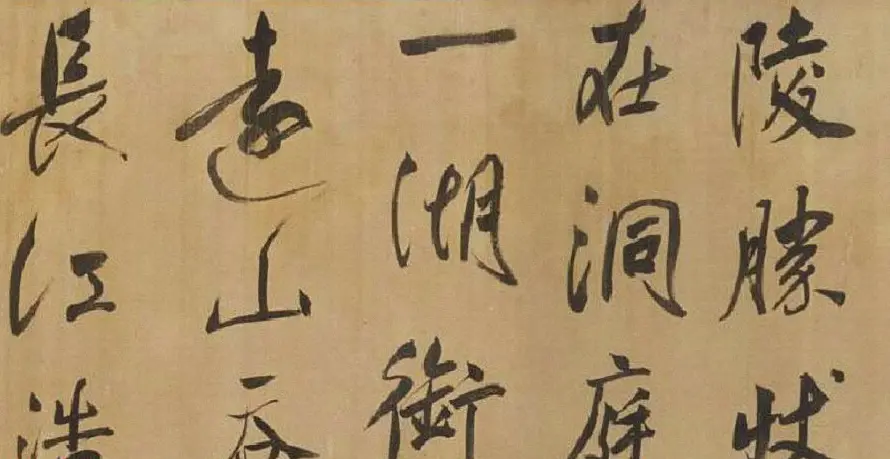 陵勝狀
在洞庭
一湖銜
遠山吞
長江浩